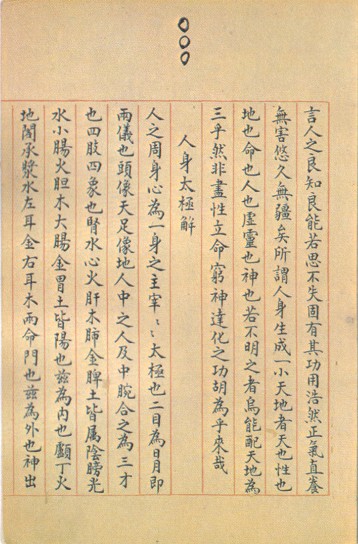 言人之良知良能若思不失固有其功用浩然正氣直養
無害悠久無疆矣所謂人身生成一小天地者天也性也
地也命也人也虛靈也神也若不明之者烏能配天地為
三乎然非盡性立命窮神達化之功胡為乎來哉
人身太極解
人之周身心為一身之主宰〻太極也二目為日月即
兩儀也頭像天足像地人中之人及中腕合之為三才
也四肢四象也腎水心火肝木肺金脾土皆屬陰膀光
水小腸火胆木大腸金胃土皆陽也茲為內也顱丁火
地閣承漿水左耳金右耳木兩命門也茲為外也神出